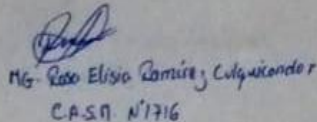 MG. Rosa Elisia Ramírez Culquicondor
C.A.S.M. N°1716